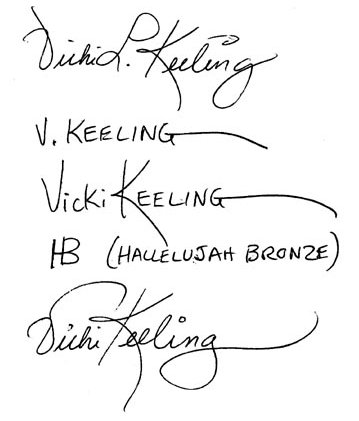 Vicki L. Keeling
V. KEELING
Vicki KEELING
HB (HALLELUJAH BRONZE)
Vicki Keeling